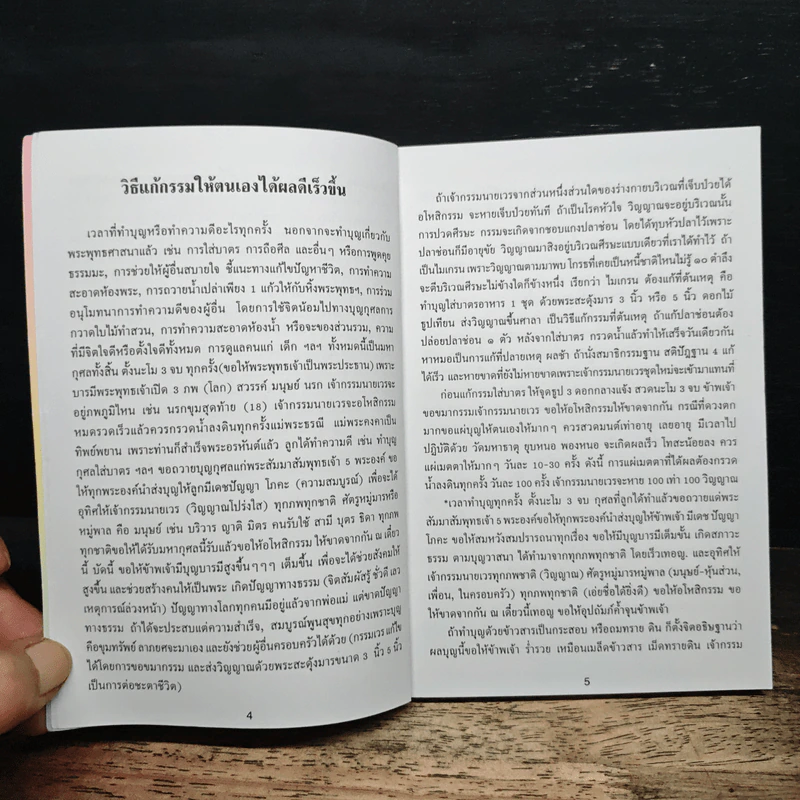 วิธีแก้กรรมให้ตนเองได้ผลดีเร็วขึ้น
เวลาที่ทำบุญหรือทำความดีอะไรทุกครั้ง นอกจากจะทำบุญเกี่ยวกับ
พระพุทธศาสนาแล้ว เช่น การใส่บาตร การถือศีล และอื่นๆ หรือการพูดคุย
ธรรมมะ, การช่วยให้ผู้อื่นสบายใจ ชี้แนะทางแก้ไขปัญหาชีวิต, การทำความ
สะอาดห้องพระ, การถวายน้ำเปล่าเพียง 1 แก้วให้กับหิ้งพระพุทธฯ, การร่วม
อนุโมทนาการทำความดีของผู้อื่น โดยการใช้จิตน้อมไปทางบุญกุศลการ
กวาดใบไม้ทำสวน, การทำความสะอาดห้องน้ำ หรือจะของส่วนรวม, ความ
ที่มีจิตใจดีหรือตั้งใจดีทั้งหมด การดูแลคนแก่ เด็ก ฯลฯ ทั้งหมดนี้เป็นมหา
กุศลทั้งสิ้น ตั้งนะโม 3 จบ ทุกครั้ง(ขอให้พระพุทธเจ้าเป็นพระประธาน) เพราะ
บารมีพระพุทธเจ้าเปิด 3 ภพ (โลก) สวรรค์ มนุษย์ นรก เจ้ากรรมนายเวรจะ
อยู่ภพภูมิไหน เช่น นรกขุมสุดท้าย (18) เจ้ากรรมนายเวรจะอโหสิกรรม
หมดรวดเร็วแล้วควรกรวดน้ำลงดินทุกครั้งแม่พระธรณี แม่พระคงคาเป็น
ทิพย์พยาน เพราะท่านก็สำเร็จพระอรหันต์แล้ว ลูกได้ทำความดี เช่น ทำบุญ
กุศลใส่บาตร ฯลฯ ขอถวายบุญกุศลแก่พระสัมมาสัมพุทธเจ้า 5 พระองค์ ขอ
ให้ทุกพระองค์นำส่งบุญให้ลูกมีเดชปัญญา โภคะ (ความสมบูรณ์) เพื่อจะได้
อุทิศให้เจ้ากรรมนายเวร (วิญญาณโปร่งใส) ทุกภพทุกชาติ ศัตรูหมู่มารหรือ
หมู่พาล คือ มนุษย์ เช่น บริวาร ญาติ มิตร คนรับใช้ สามี บุตร ธิดา ทุกภพ
ทุกชาติขอให้ได้รับมหากุศลนี้รับแล้วขอให้อโหสิกรรม ให้ขาดจากกัน ณ เดี๋ยว
นี้ บัดนี้ ขอให้ข้าพเจ้ามีบุญบารมีสูงขึ้นๆๆๆ เต็มขึ้น เพื่อจะได้ช่วยสังคมให้
สูงขึ้น และช่วยสร้างคนให้เป็นพระ เกิดปัญญาทางธรรม (จิตสัมผัสรู้ ชั่วดี เลว
เหตุการณ์ล่วงหน้า) ปัญญาทางโลกทุกคนมีอยู่แล้วจากพ่อแม่ แต่ขาดปัญญา
ทางธรรม ถ้าได้จะประสบแต่ความสำเร็จ, สมบูรณ์พูนสุขทุกอย่างเพราะบุญ
คือขุมทรัพย์ ลาภยศจะมาเอง และยังช่วยผู้อื่นครอบครัวได้ด้วย (กรรมเวร แก้ไข
ได้โดยการขอขมากรรม และส่งวิญญาณด้วยพระสะดุ้งมารขนาด 3 นิ้ว 5 นิ้ว
เป็นการต่อชะตาชีวิต)
4
ถ้าเจ้ากรรมนายเวรจากส่วนหนึ่งส่วนใดของร่างกายบริเวณที่เจ็บป่วยได้
อโหสิกรรม จะหายเจ็บป่วยทันที ถ้าเป็นโรคหัวใจ วิญญาณจะอยู่บริเวณนั้น
การปวดศีรษะ กรรมจะเกิดจากชอบแกงปลาช่อน โดยได้ทุบหัวปลาไว้เพราะ
ปลาช่อนก็มีอายุขัย วิญญาณมาสิงอยู่บริเวณศีรษะแบบเดียวที่เราได้ทำไว้ ถ้า
เป็นไมเกรน เพราะวิญญาณตามมาพบ โกรธที่เคยเป็นหนี้ชาติไหนไม่รู้ ๑๐ ตำลึง
จะตีบริเวณศีรษะไม่ข้างใดก็ข้างหนึ่ง เรียกว่า ไมเกรน ต้องแก้ที่ต้นเหตุ คือ
ทำบุญใส่บาตรอาหาร 1 ชุด ด้วยพระสะดุ้งมาร 3 นิ้ว หรือ 5 นิ้ว ดอกไม้
ธูปเทียน ส่งวิญญาณขึ้นศาลา เป็นวิธีแก้กรรมที่ต้นเหตุ ถ้าแก้ปลาช่อนต้อง
ปล่อยปลาช่อน ๑ ตัว หลังจากใส่บาตร กรวดน้ำแล้วทำให้เสร็จวันเดียวกัน
หาหมอเป็นการแก้ที่ปลายเหตุ ผลช้า ถ้านั่งสมาธิกรรมฐาน สติปัฏฐาน 4 แก้
ได้เร็ว และหายขาดที่ยังไม่หายขาดเพราะเจ้ากรรมนายเวรชุดใหม่จะเข้ามาแทนที่
ก่อนแก้กรรมใส่บาตร ให้จุดธูป 3 ดอกกลางแจ้ง สวดนะโม 3 จบ ข้าพเจ้า
ขอขมากรรมเจ้ากรรมนายเวร ขอให้อโหสิกรรมให้ขาดจากกัน กรณีที่ดวงตก
มากขอแผ่บุญให้ตนเองให้มากๆ ควรสวดมนต์เท่าอายุ เลยอายุ มีเวลาไป
ปฏิบัติด้วย วัดมหาธาตุ ยุบหนอ พองหนอ จะเกิดผลเร็ว โทสะน้อยลง ควร
แผ่เมตตาให้มากๆ วันละ 10-30 ครั้ง ดังนี้ การแผ่เมตตาที่ได้ผลต้องกรวด
น้ำลงดินทุกครั้ง วันละ 100 ครั้ง เจ้ากรรมนายเวรจะหาย 100 เท่า 100 วิญญาณ
*เวลาทำบุญทุกครั้ง ตั้งนะโม 3 จบ กุศลที่ลูกได้ทำแล้วขอถวายแด่พระ
สัมมาสัมพุทธเจ้า 5 พระองค์ขอให้ทุกพระองค์นำส่งบุญให้ข้าพเจ้า มีเดช ปัญญา
โภคะ ขอให้สมหวังสมปรารถนาทุกเรื่อง ขอให้มีบุญบารมีเต็มขั้น เกิดสภาวะ
ธรรม ตามบุญวาสนา ได้ทำมาจากทุกภพทุกชาติ โดยเร็วเทอญ. และอุทิศให้
เจ้ากรรมนายเวรทุกภพชาติ (วิญญาณ) ศัตรูหมู่มารหมู่พาล (มนุษย์-หุ้นส่วน,
เพื่อน, ในครอบครัว) ทุกภพชาติ (เอ่ยชื่อได้ยิ่งดี) ขอให้อโหสิกรรม ขอ
ให้ขาดจากกัน ณ เดี๋ยวนี้เทอญ ขอให้อุปถัมภ์ค้ำจุนข้าพเจ้า
ถ้าทำบุญด้วยข้าวสารเป็นกระสอบ หรือถมทราย ดิน ก็ตั้งจิตอธิษฐานว่า
ผลบุญนี้ขอให้ข้าพเจ้า ร่ำรวย เหมือนเมล็ดข้าวสาร เม็ดทรายดิน เจ้ากรรม
5